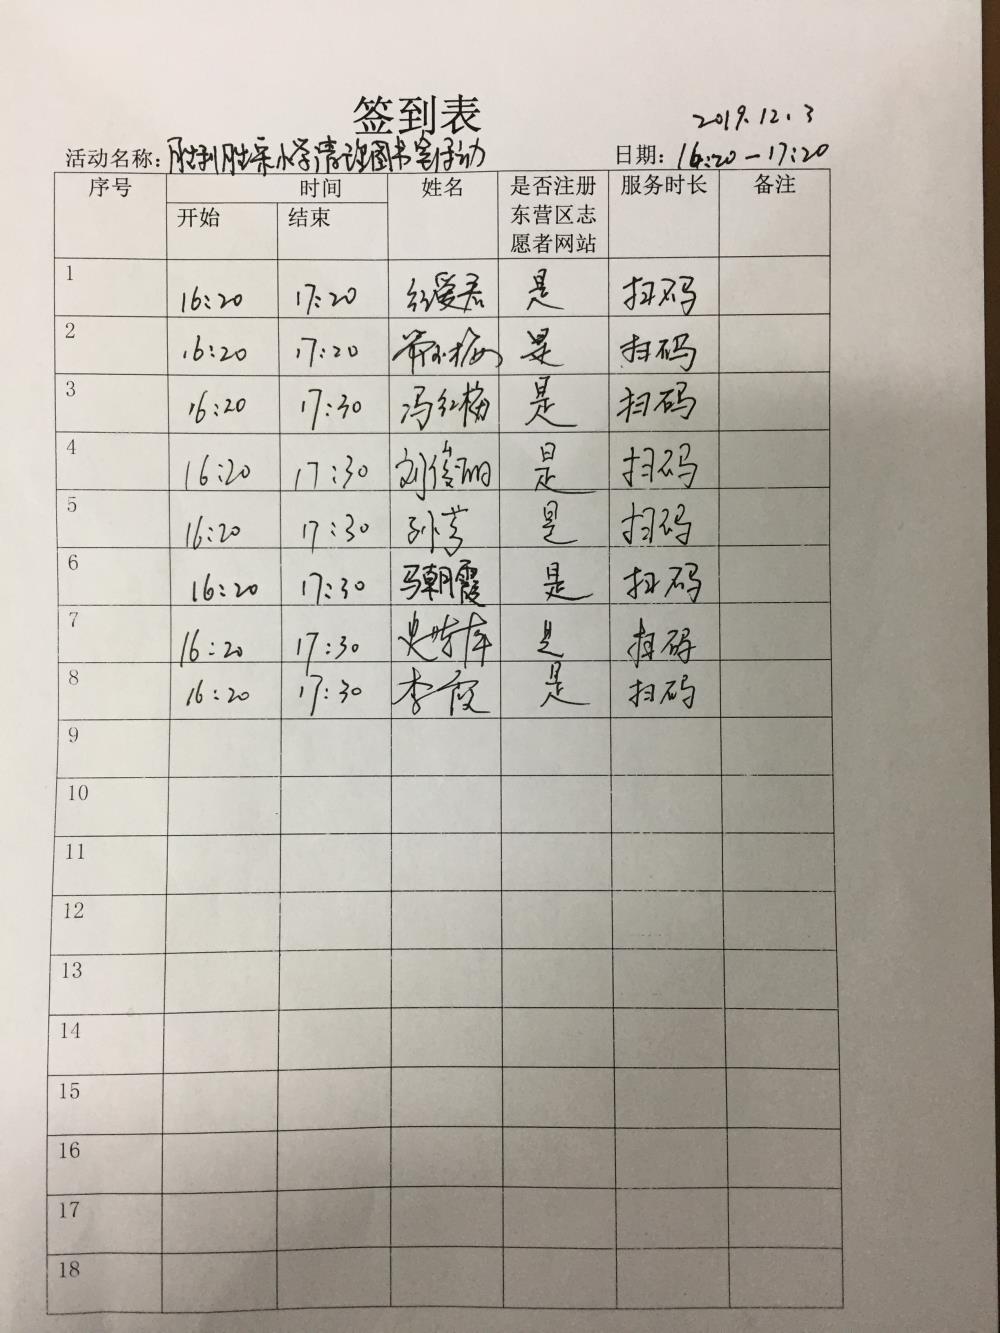 签到表
2019.12.3
活动名称:胜利胜采小学清理图书室活动 日期:16:20—17:20
序号 时间 姓名 是否注册 服务时长 备注
开始 结束 东营区志
愿者网站
1 16:20 17:20 是 扫码
2 16:20 17:20 是 扫码
3 16:20 17:30 冯红梅 是 扫码
4 16:20 17:30 刘俊丽 是 扫码
5 16:20 17:30 孙芳 是 扫码
6 16:20 17:30 马朝霞 是 扫码
7 16:20 17:30 是 扫码
8 16:20 17:30 李霞 是 扫码
9
10
11
12
13
14
15
16
17
18